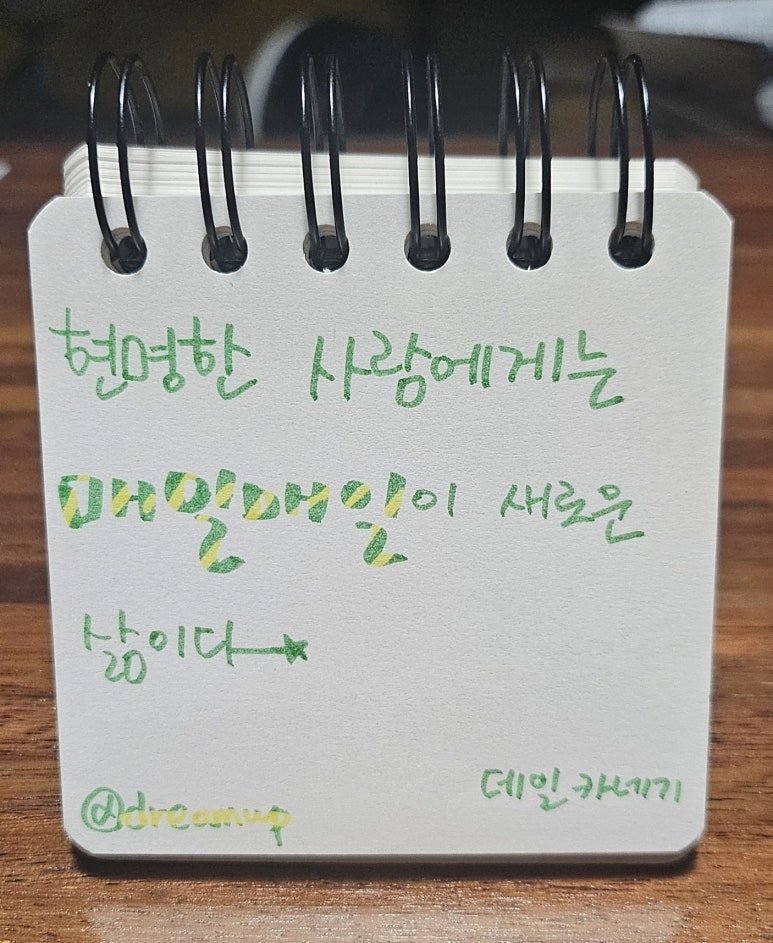 현명한 사람에게는
매일매일이 새로운
삶이다
데일카네기
@dreamup